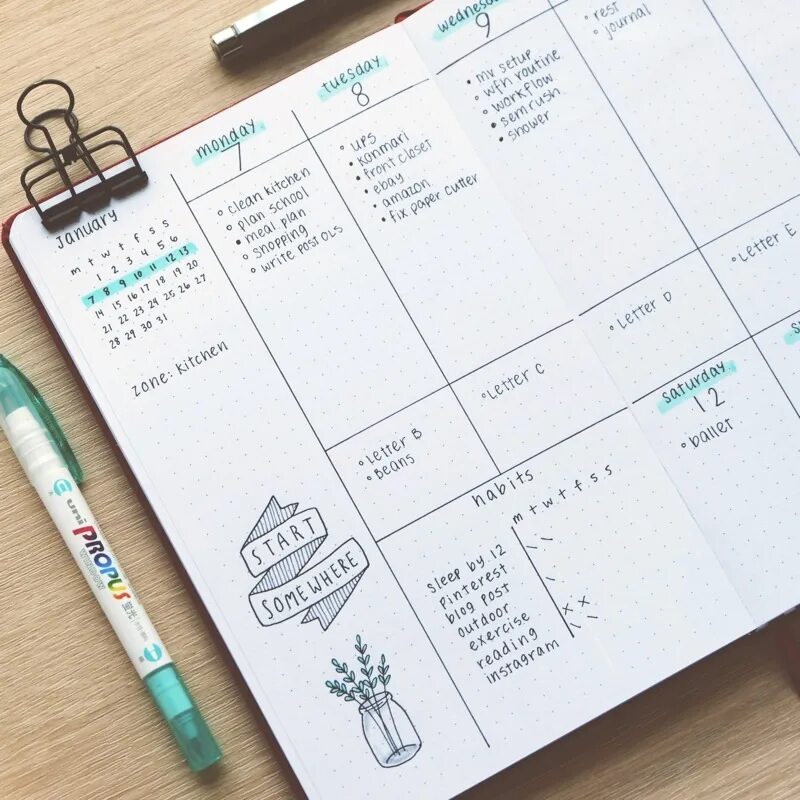 January
m t w t f s s
1 2 3 4 5 6
7 8 9 10 11 12 13
14 15 16 17 18 19 20
21 22 23 24 25 26 27
28 29 30 31
Zone: Kitchen
START
SOMEWHERE
monday
7
clean kitchen
plan school
meal plan
shopping
write POST OLS
Letter B
Beans
tuesday
8
UPS
Konmari
front closet
ebay
amazon
fix paper cutter
Letter C
wednesday
9
mv setup
wfh routine
workflow
semrush
shower
Letter D
rest
journal
Letter E
habits
m t w t f s s
Sleep by 12
pinterest
blog post
outdoor
exercise
reading
instagram
saturday
12
ballet
uni
PROPUS
WINDOW